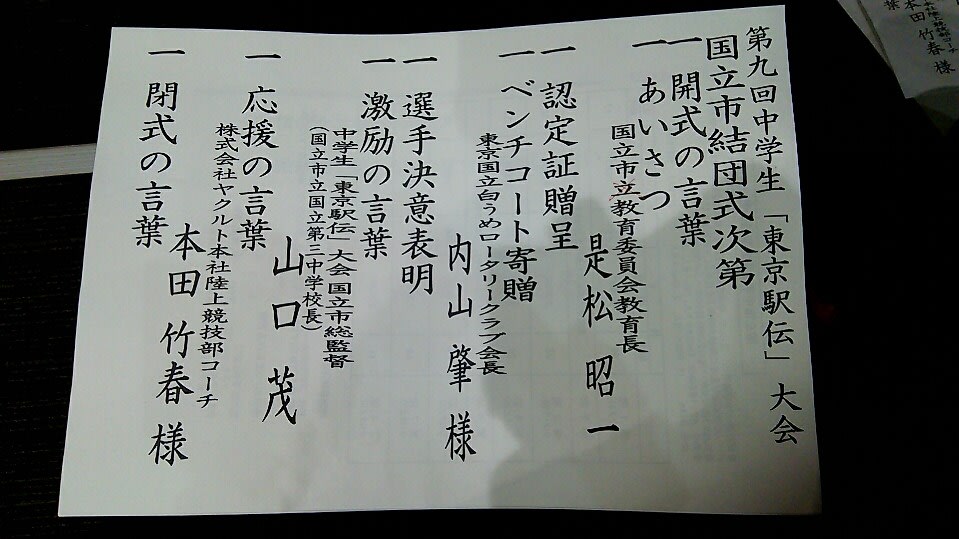 第九回中学生「東京駅伝」大会
国立市結団式次第
一 開式の言葉
一 あいさつ
国立市立教育委員会教育長
是松 昭一
一 認定証贈呈
一 ベンチコート寄贈
東京国立白うめロータリークラブ会長
内山 肇 様
一 選手決意表明
一 激励の言葉
中学生「東京駅伝」大会国立市総監督
(国立市立国立第三中学校長)
山口 茂
一 応援の言葉
株式会社ヤクルト本社陸上競技部コーチ
本田 竹春 様
一 閉式の言葉
本田 竹春 様